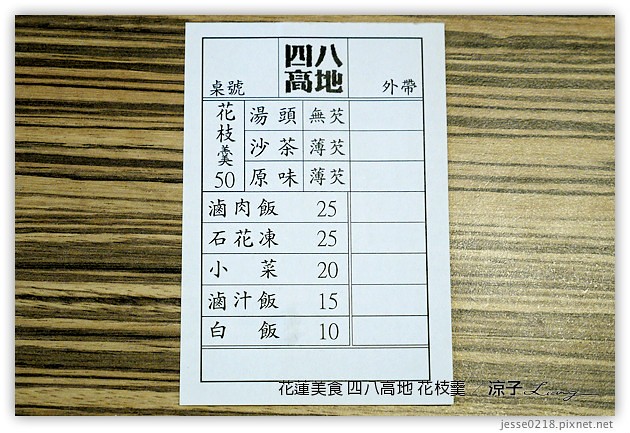 四八
高地
桌號
外帶
花枝羹 50
湯頭 無芡
沙茶 薄芡
原味 薄芡
滷肉飯 25
石花凍 25
小菜 20
滷汁飯 15
白飯 10
花蓮美食 四八高地 花枝羹
涼子 Living
jesse0218.pixnet.net